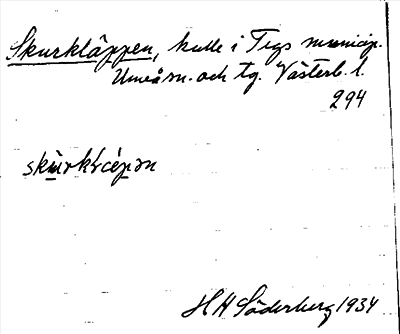 Skurkläppen, kulle i Tegs municip.
Umeå sn. och tg. Västerb. l.
294
HH Söderberg 1934